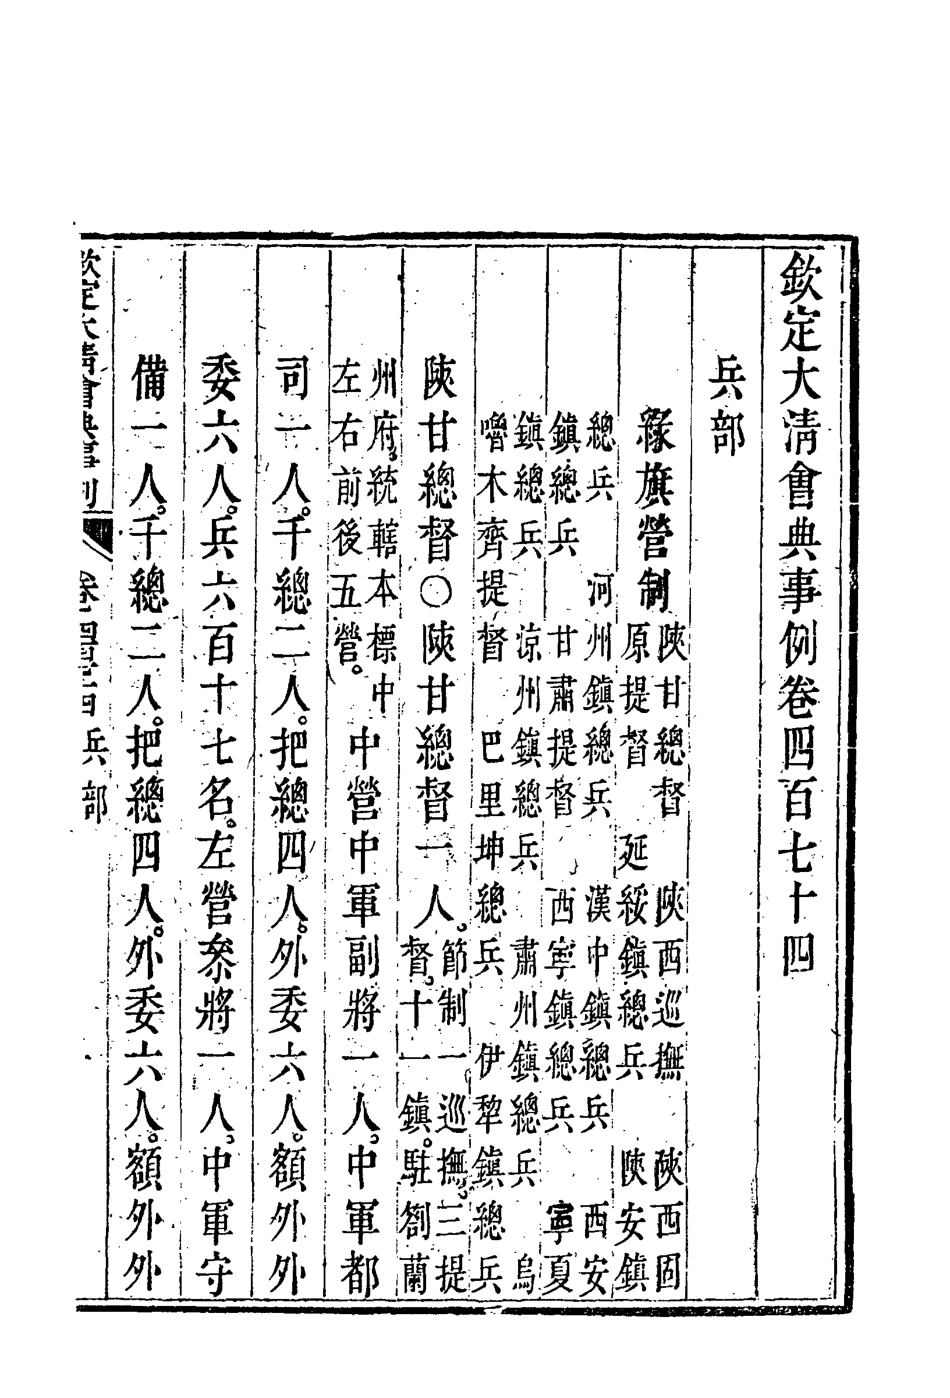 欽定大清會典事例卷四百七十四
兵部
綠旗營制
陝甘總督　陝西巡撫　陝西固
原提督　延綏鎮總兵　陝安鎮
總兵　河州鎮總兵　漢中鎮總兵　西安
鎮總兵　甘肅提督　西寧鎮總兵　寧夏
鎮總兵　涼州鎮總兵　肅州鎮總兵　烏
嚕木齊提督　巴里坤總兵　伊犂鎮總兵
陝甘總督○陝甘總督一人。
節制一巡撫。三提
督。十一鎮。駐劄蘭
州府。統轄本標中
左右前後五營。
中營中軍副將一人。中軍都
司一人。千總二人。把總四人。外委六人。額外外
委六人。兵六百十七名。左營叅將一人。中軍守
備一人。千總二人。把總四人。外委六人。額外外
欽定大清會典事例　卷四百七十四　兵部